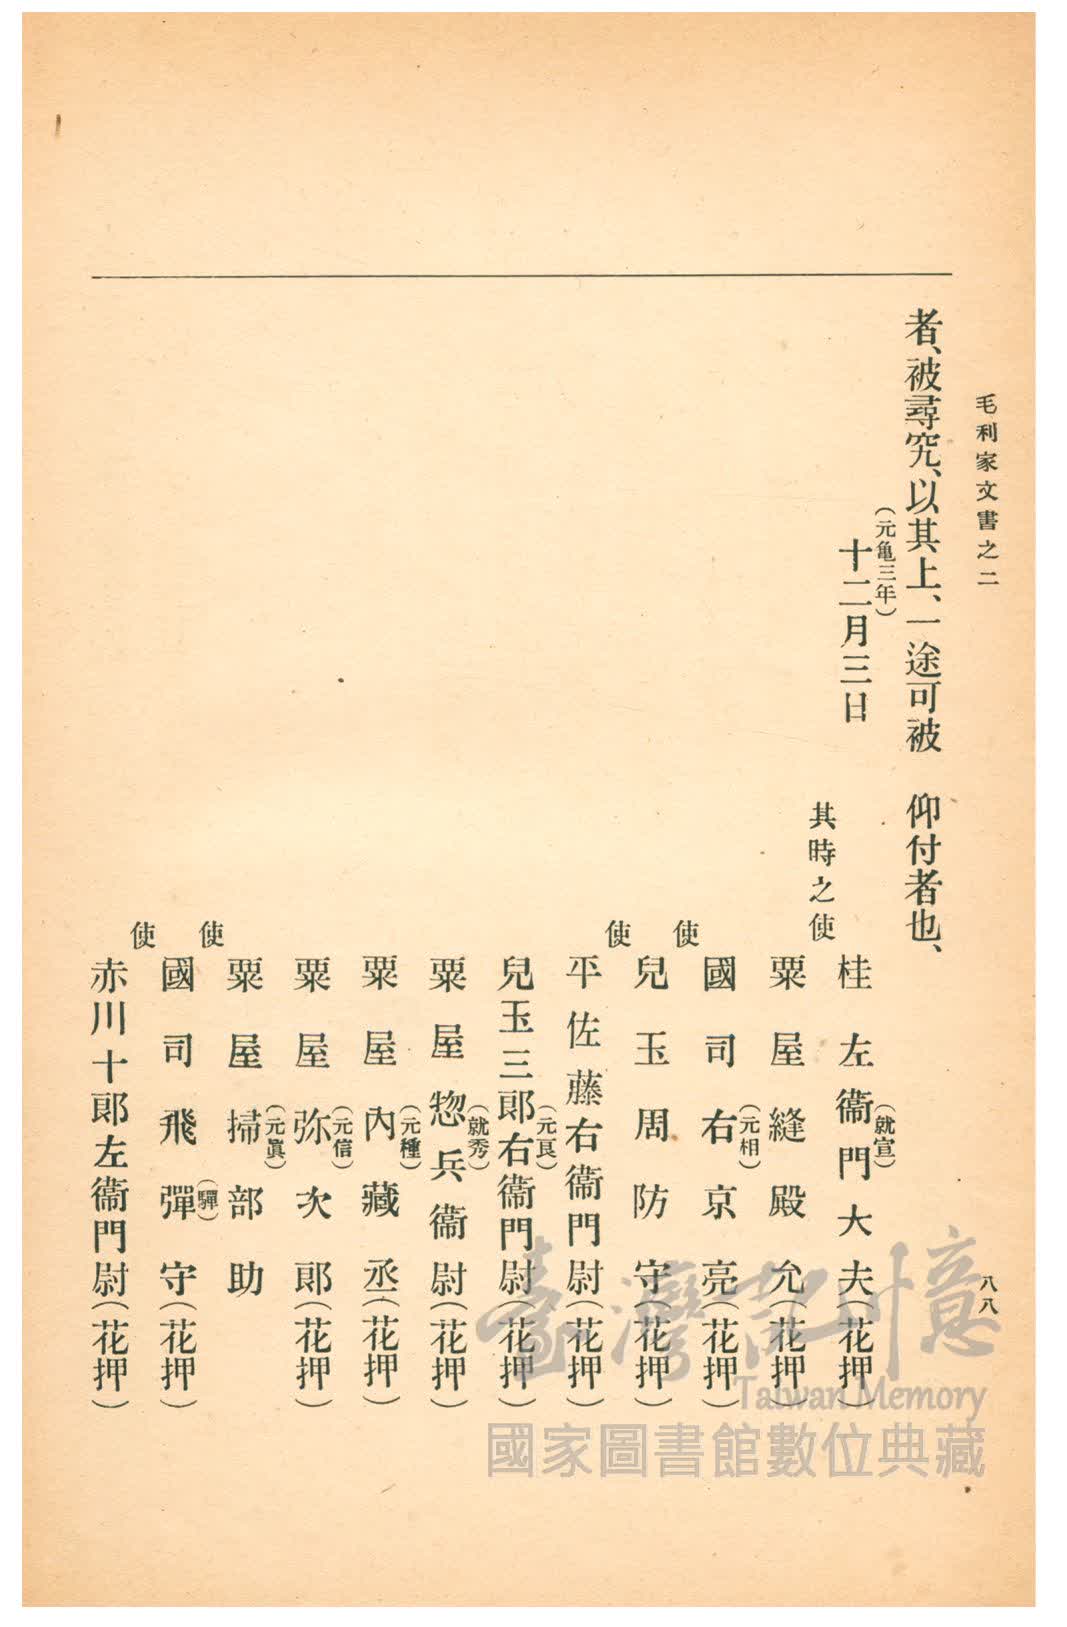 毛利家文書之二
八八
者、被尋究、以其上、一途可被　仰付者也、
（元亀三年）
十二月三日
（就宣）
桂左衞門大夫（花押）
其時之使
粟屋縫殿允（花押）
（元相）
國司右京亮（花押）
使
兒玉周防守（花押）
使
平佐藤右衞門尉（花押）
（元良）
兒玉三郎右衞門尉（花押）
（就秀）
粟屋惣兵衞尉（花押）
（元種）
粟屋內藏丞（花押）
（元信）
粟屋弥次郎（花押）
（元眞）
粟屋掃部助
使
（驒）
國司飛彈守（花押）
使
赤川十郎左衞門尉（花押）
臺灣記憶
Taiwan Memory
國家圖書館數位典藏